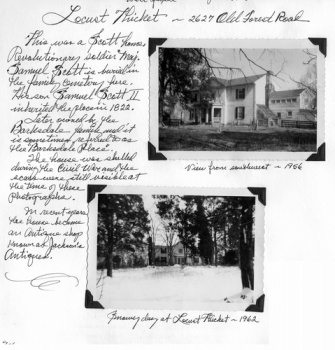 Locust Thicket ~ 2627 Old Forest Road
This was a Scott home,
Revolutionary soldier Maj.
Samuel Scott is buried in
the family cemetery here.
His son, Samuel Scott II
inherited the place in 1822.
Later owned by the
Barksdale family and it
is sometimes referred to as
the "Barksdale Place".
The house was shelled
during the Civil War and the
scars were still visible at
the time of these
photographs.
In recent years
the house became
an Antique shop
known as Jackson's
Antiques.
View from southwest ~ 1956
Snowy day at Locust Thicket ~ 1962